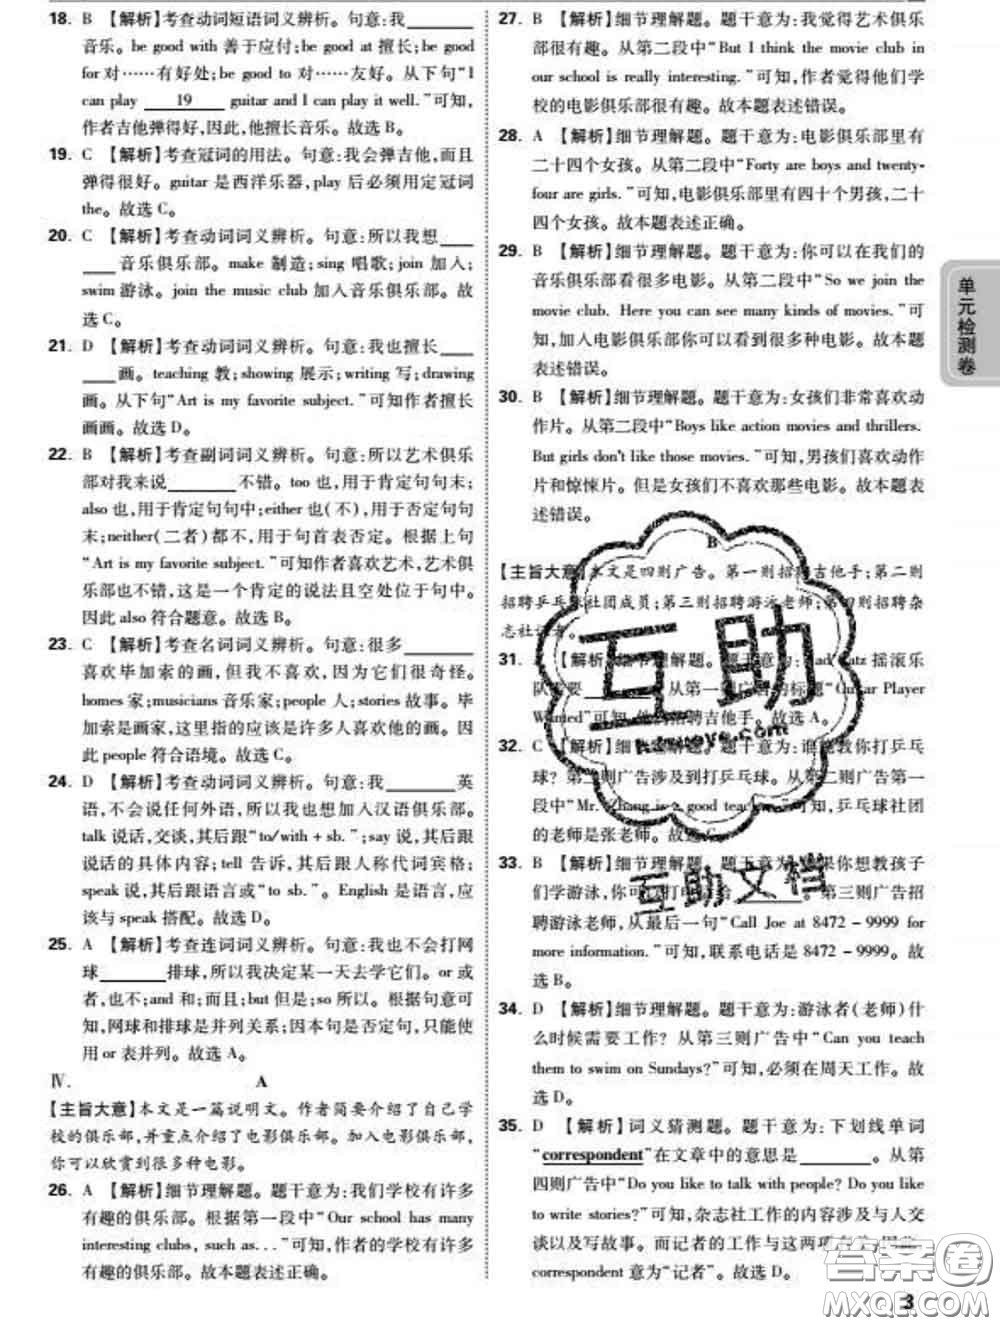 18. B 【解析】考查动词短语词义辨析。句意:我____
音乐。be good with 善于应付;be good at 擅长;be good
for 对……有好处;be good to 对……友好。从下句“I
can play 19 guitar and I can play it well.”可知,
作者吉他弹得好,因此,他擅长音乐。故选 B。
19. C 【解析】考查冠词的用法。句意:我会弹吉他,而且
弹得很好。guitar 是西洋乐器,play 后必须用定冠词
the。故选 C。
20. C 【解析】考查动词词义辨析。句意:所以我想____
____音乐俱乐部。make 制造;sing 唱歌;join 加入;
swim 游泳。join the music club 加入音乐俱乐部。故
选 C。
21. D 【解析】考查动词词义辨析。句意:我也擅长____
____画。teaching 教;showing 展示;writing 写;drawing
画。从下句“Art is my favorite subject.”可知作者擅长
画画。故选 D。
22. B 【解析】考查副词词义辨析。句意:所以艺术俱乐
部对我来说________不错。too 也,用于肯定句句末;
also 也,用于肯定句句中;either 也(不),用于否定句句
末;neither(二者)都不,用于句首表否定。根据上句
“Art is my favorite subject.”可知作者喜欢艺术,艺术俱
乐部也不错,这是一个肯定的说法且空处位于句中。
因此 also 符合题意。故选 B。
23. C 【解析】考查名词词义辨析。句意:很多________
喜欢毕加索的画,但我不喜欢,因为它们很奇怪。
homes 家;musicians 音乐家;people 人;stories 故事。毕
加索是画家,这里指的应该是许多人喜欢他的画。因
此 people 符合语境。故选 C。
24. D 【解析】考查动词词义辨析。句意:我________英
语,不会说任何外语,所以我也想加入汉语俱乐部。
talk 说话,交谈,其后跟“to/with + sb.”;say 说,其后跟
说话的具体内容;tell 告诉,其后跟人称代词宾格;
speak 说,其后跟语言或“to sb.”。English 是语言,应
该与 speak 搭配。故选 D。
25. A 【解析】考查连词词义辨析。句意:我也不会打网
球________排球,所以我决定某一天去学它们。or 或
者,也不;and 和;而且;but 但是;so 所以。根据句意可
知,网球和排球是并列关系;因本句是否定句,只能使
用 or 表并列。故选 A。
Ⅳ. A
【主旨大意】本文是一篇说明文。作者简要介绍了自己学
校的俱乐部,并重点介绍了电影俱乐部。加入电影俱乐部,
你可以欣赏到很多种电影。
26. A 【解析】细节理解题。题干意为:我们学校有许多
有趣的俱乐部。根据第一段中“Our school has many
interesting clubs, such as...”可知,作者的学校有许多
有趣的俱乐部。故本题表述正确。
27. B 【解析】细节理解题。题干意为:我觉得艺术俱乐
部很有趣。从第二段中“But I think the movie club in
our school is really interesting.”可知,作者觉得他们学
校的电影俱乐部很有趣。故本题表述错误。
28. A 【解析】细节理解题。题干意为:电影俱乐部里有
二十四个女孩。从第二段中“Forty are boys and twenty-
four are girls.”可知,电影俱乐部里有四十个男孩,二十
四个女孩。故本题表述正确。
29. B 【解析】细节理解题。题干意为:你可以在我们的
音乐俱乐部看很多电影。从第二段中“So we join the
movie club. Here you can see many kinds of movies.”可
知,加入电影俱乐部你可以看到很多种电影。故本题
表述错误。
30. B 【解析】细节理解题。题干意为:女孩们非常喜欢动
作片。从第二段中“Boys like action movies and thrillers.
But girls don't like those movies.”可知,男孩们喜欢动作
片和惊悚片。但是女孩们不喜欢那些电影。故本题表
述错误。
B
【主旨大意】本文是四则广告。第一则招聘吉他手;第二则
招聘乒乓球社团成员;第三则招聘游泳老师;第四则招聘杂
志社记者。
31. A 【解析】细节理解题。题干意为: 摇滚乐
队需要________。从第一则广告的标题“Guitar Player
Wanted”可知,他们招聘吉他手。故选 A。
32. C 【解析】细节理解题。题干意为:谁能教你打乒乓
球? 第二则广告涉及到打乒乓球。从第二则广告第一
段中“Mr. Zhang is a good teacher”可知,乒乓球社团
的老师是张老师。故选 C。
33. B 【解析】细节理解题。题干意为:如果你想教孩子
们学游泳,你可以打电话给________。第三则广告招
聘游泳老师,从最后一句“Call Joe at 8472 - 9999 for
more information.”可知,联系电话是 8472 - 9999。故
选 B。
34. D 【解析】细节理解题。题干意为:游泳者(老师)什
么时候需要工作? 从第三则广告中“Can you teach
them to swim on Sundays?”可知,必须在周天工作。故
选 D。
35. D 【解析】词义猜测题。题干意为:下划线单词
“correspondent”在文章中的意思是________。从第
四则广告中“Do you like to talk with people? Do you like
to write stories?”可知,杂志社工作的内容涉及与人交
谈以及写故事。而记者的工作与这两项
correspondent 意为“记者”。故选 D。
单元检测卷
互助
互助文档
答案卷
MXQE.COM
3